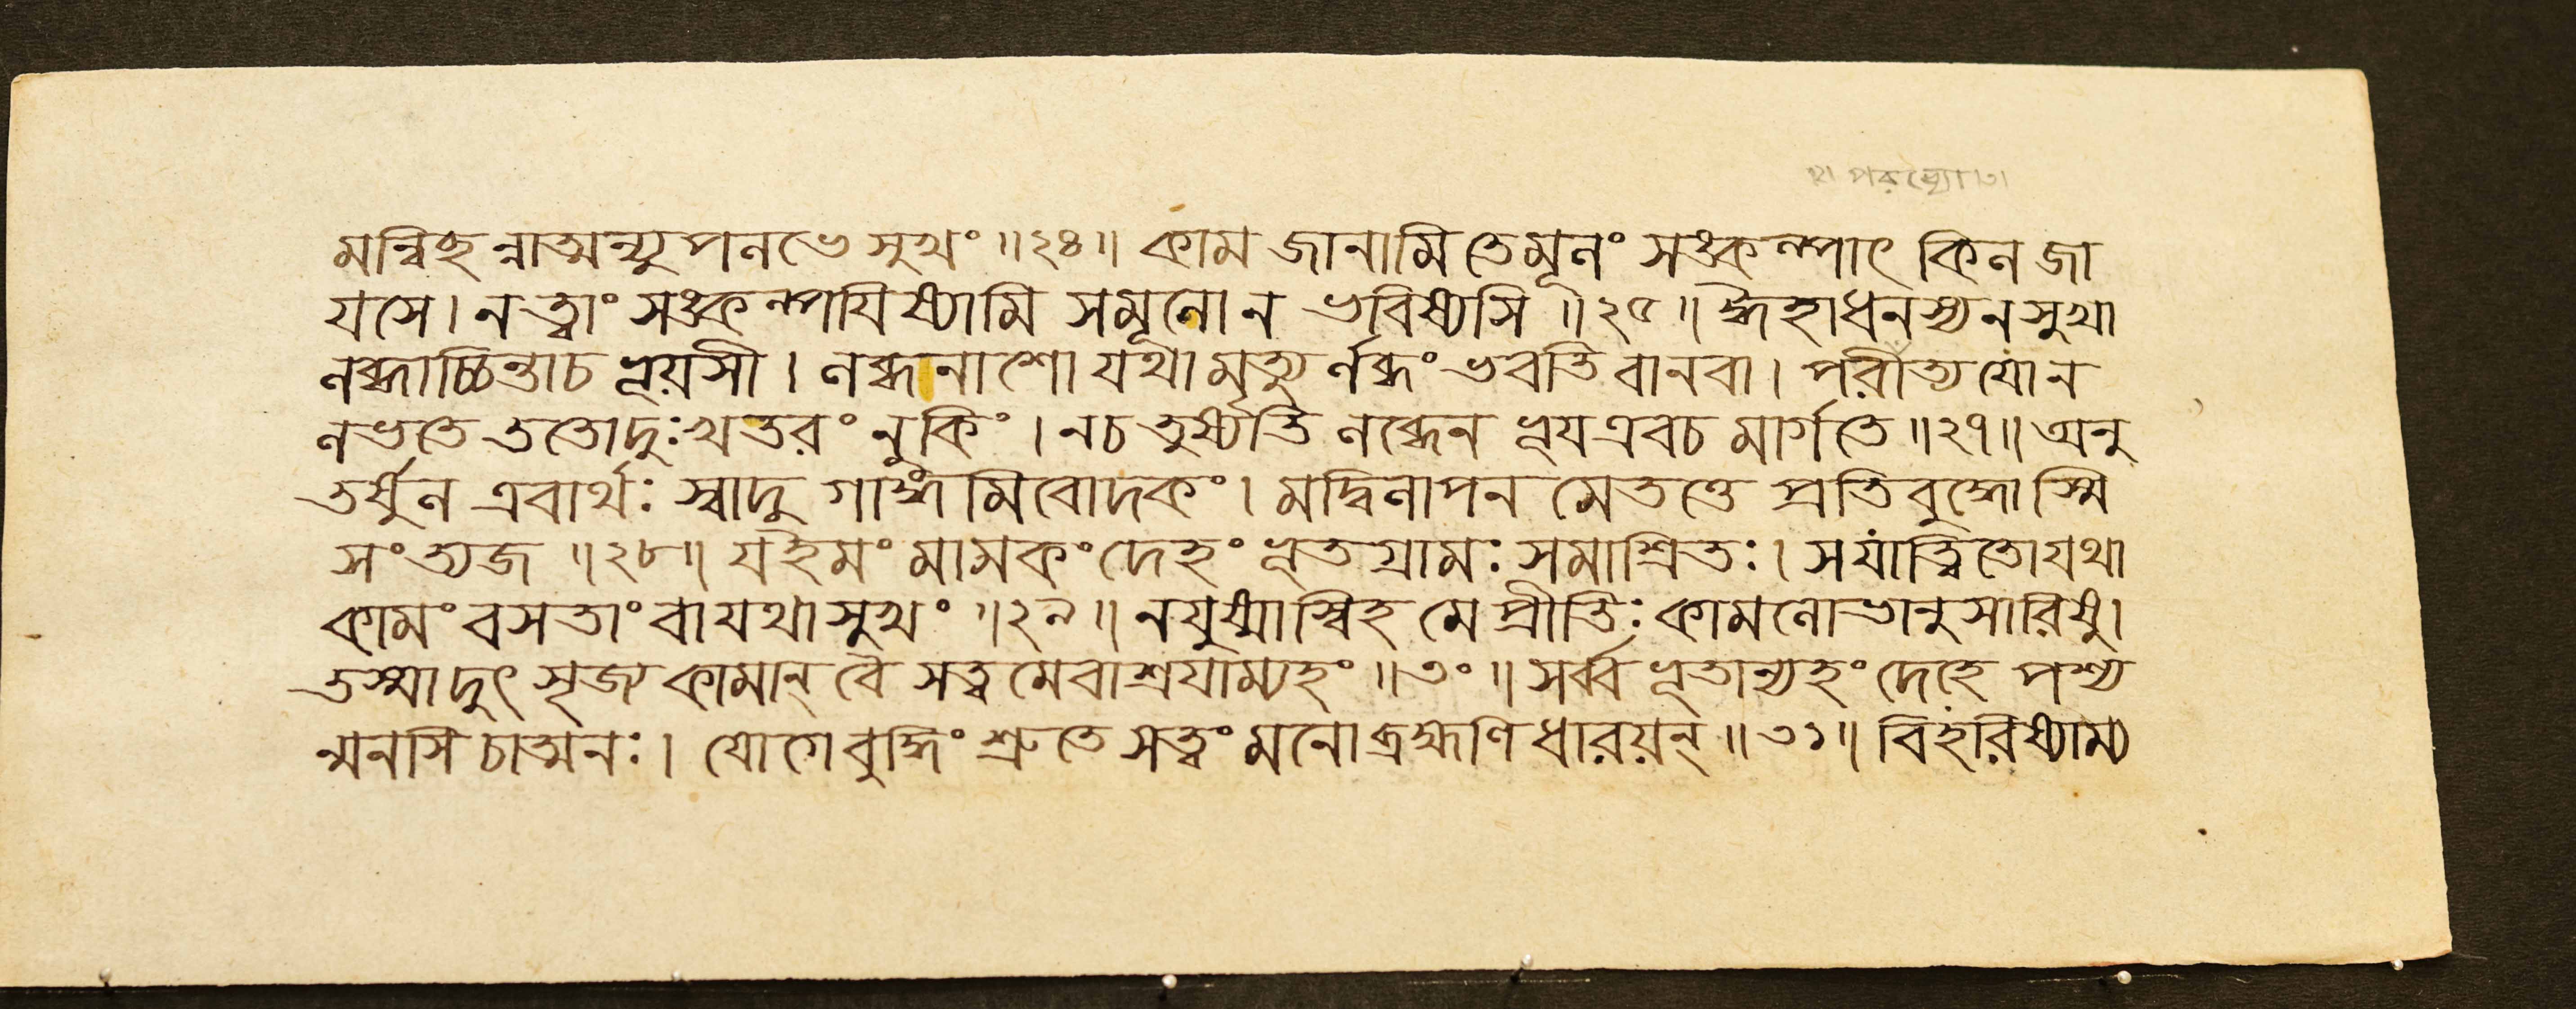 মন্বিচ্ছন্নাত্মন্যুপলভে সুখং ॥২৪॥ কাম জানামি তে মূলং সঙ্কল্পাৎ কিল জা
য়সে। ন ত্বাং সঙ্কল্পয়িষ্যামি সমূলো ন ভবিষ্যসি ॥২৫॥ ঈহা ধনস্য ন সুখা
লব্ধাচ্চিন্তা চ ভূয়সী। লব্ধনাশো যথা মৃত্যুর্লব্ধং ভবতি বা ন বা। পরীত্য যো ন
লভতে ততো দুঃখতরং নু কিং। ন চ তুষ্যতি লব্ধেন ভূয় এব চ মার্গতে ॥২৭॥ অনু
তর্ষুল এবার্থঃ স্বাদু গাঙ্গমিবোদকং। মদ্বিলাপনমেতত্তে প্রতিবুদ্ধোস্মি
সংত্যজ ॥২৮॥ য ইমং মামকং দেহং ভূতগ্রামঃ সমাশ্রিতঃ। স যাত্বিতো যথা
কামং বসতাং বা যথাসুখং ॥২৯॥ ন যুষ্মাস্বিহ মে প্রীতিঃ কামলোভানুসারিষু।
তস্মাদুৎসৃজ্য কামান্ বৈ সত্ত্বমেবাশ্রয়াম্যহং ॥৩০॥ সর্ব্বভূতান্যহং দেহে পশ্য
ন্মনসি চাত্মনঃ। যোগে বুদ্ধিং শ্রুতে সত্ত্বং মনো ব্রহ্মণি ধারয়ন্ ॥৩১॥ বিহরিষ্যাম্য